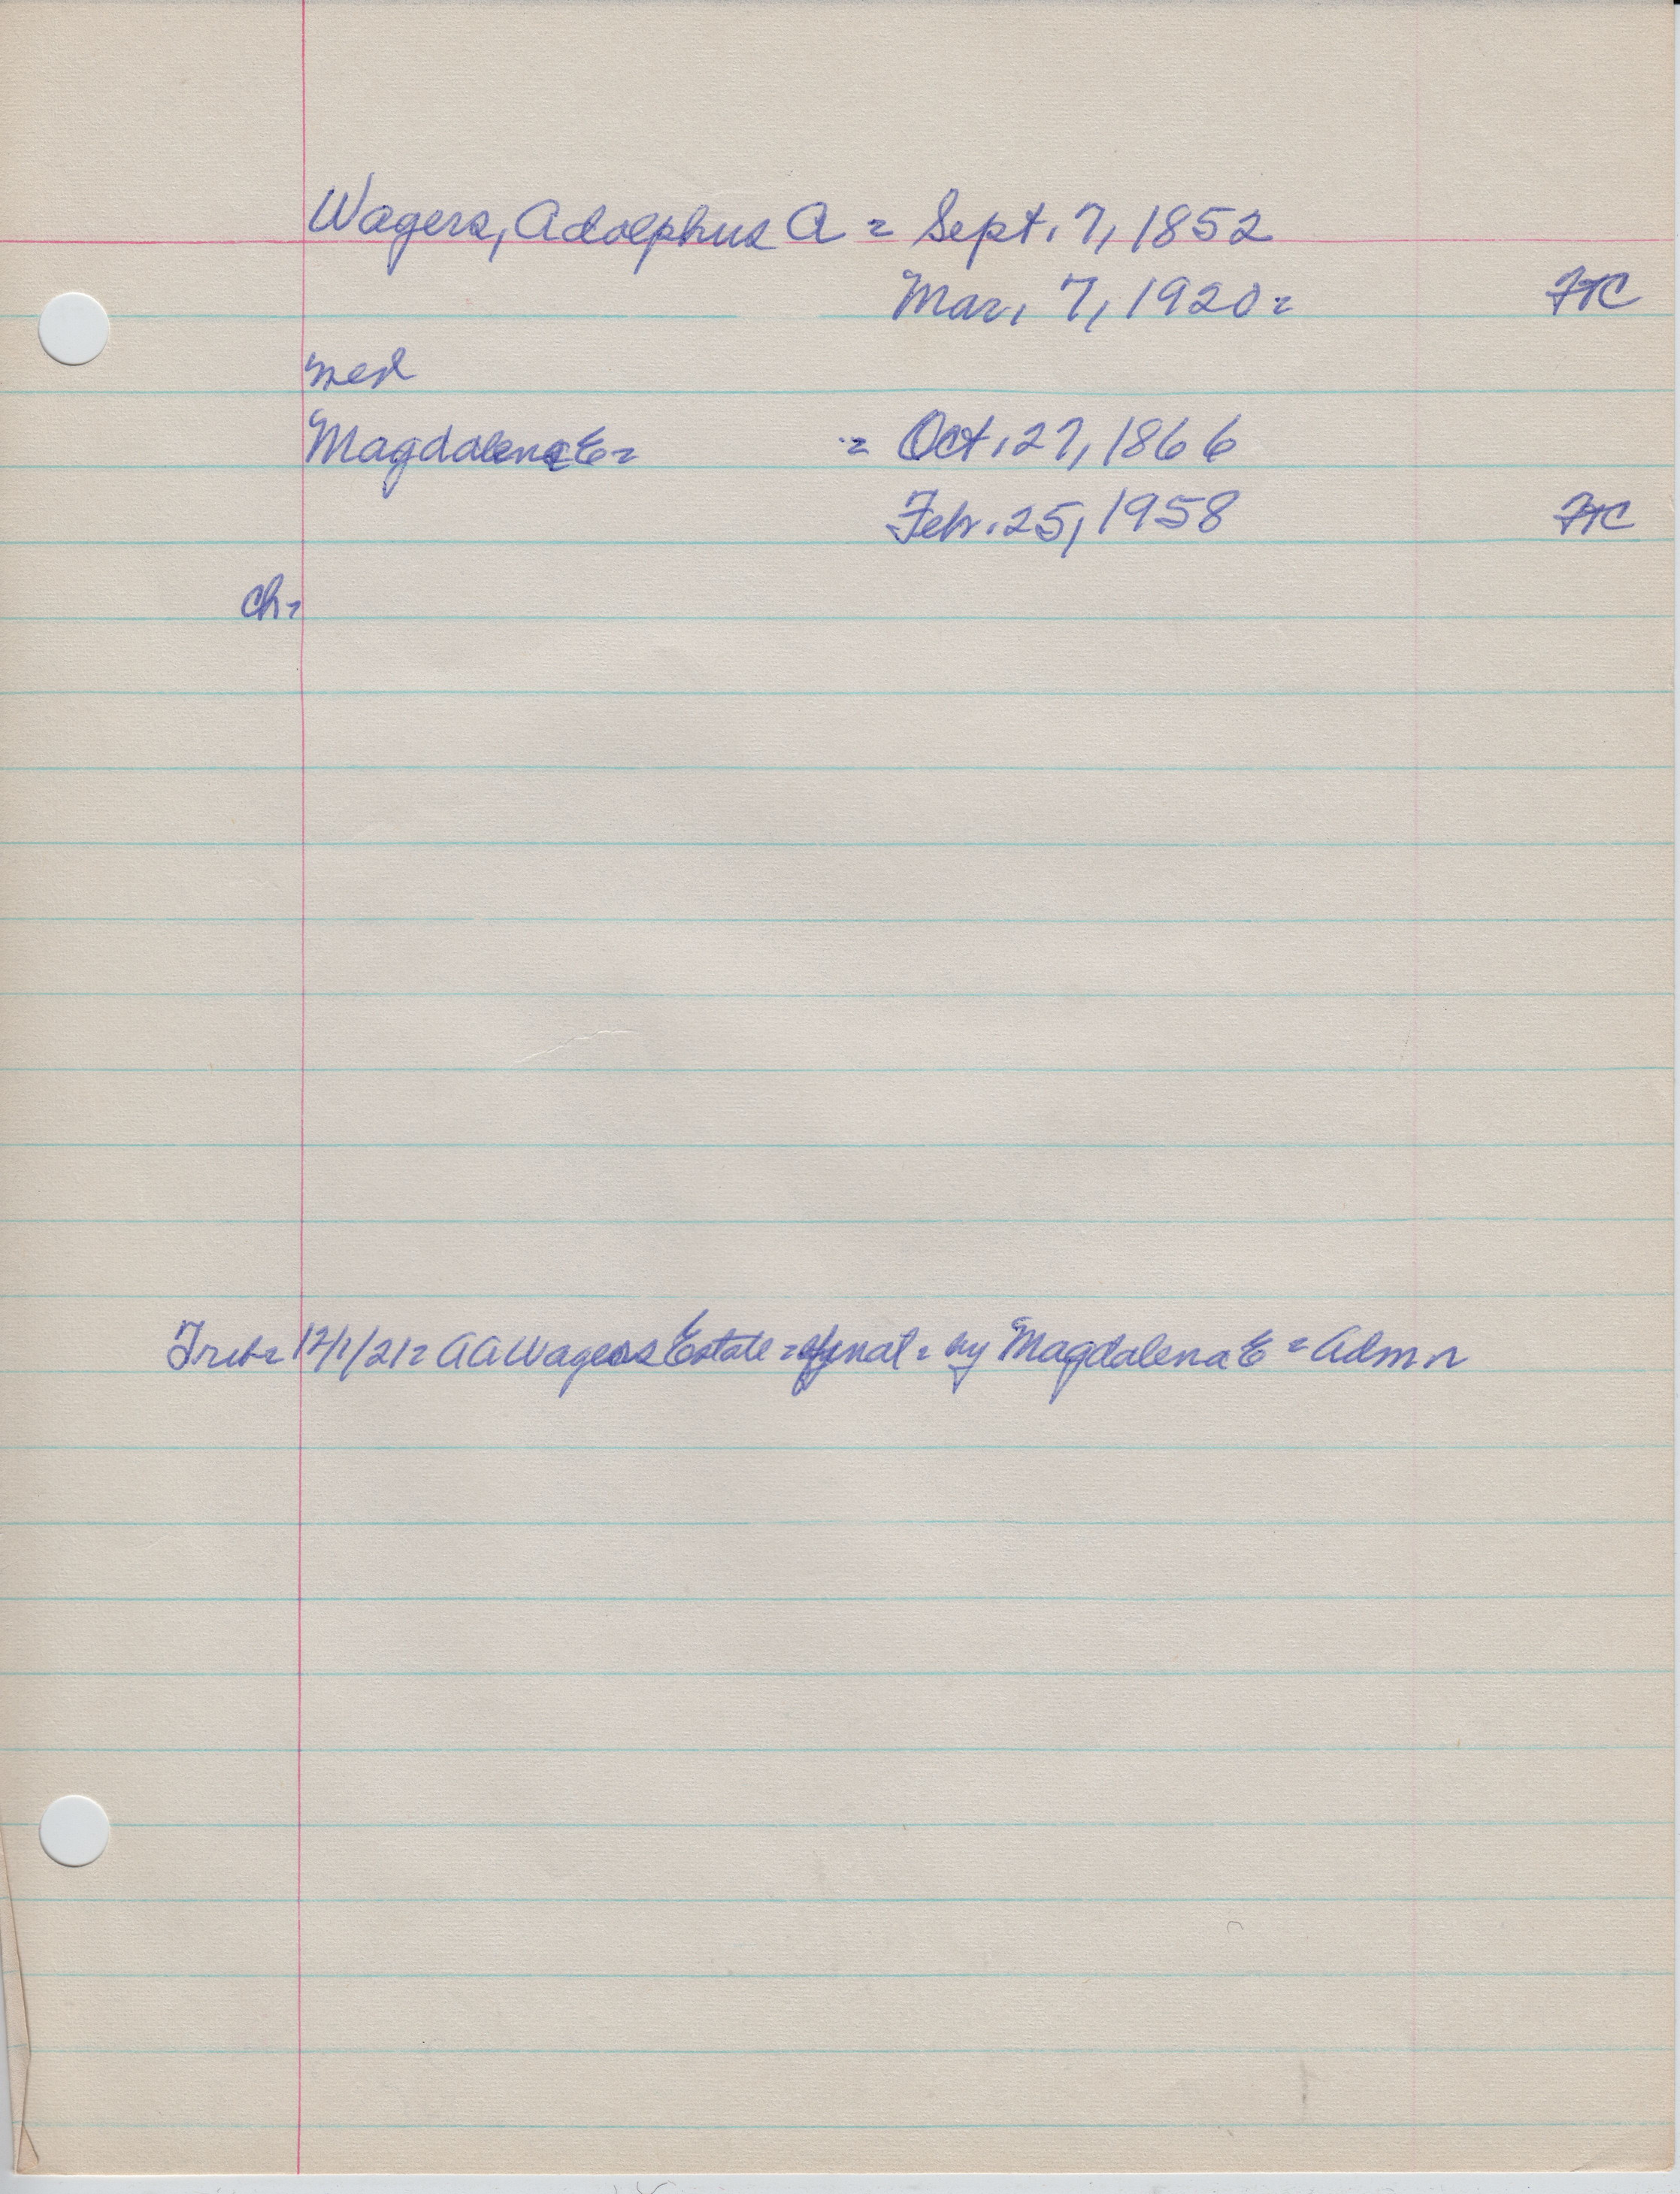 Wagers, Adolphus A = Sept. 7, 1852
Mar. 7, 1920 = FTC
med
Magdalena E = = Oct. 27, 1866
Feb. 25, 1958 FTC
ch =
Trib = 12/1/21 = A A Wagers Estate = final = by Magdalena E = Admr